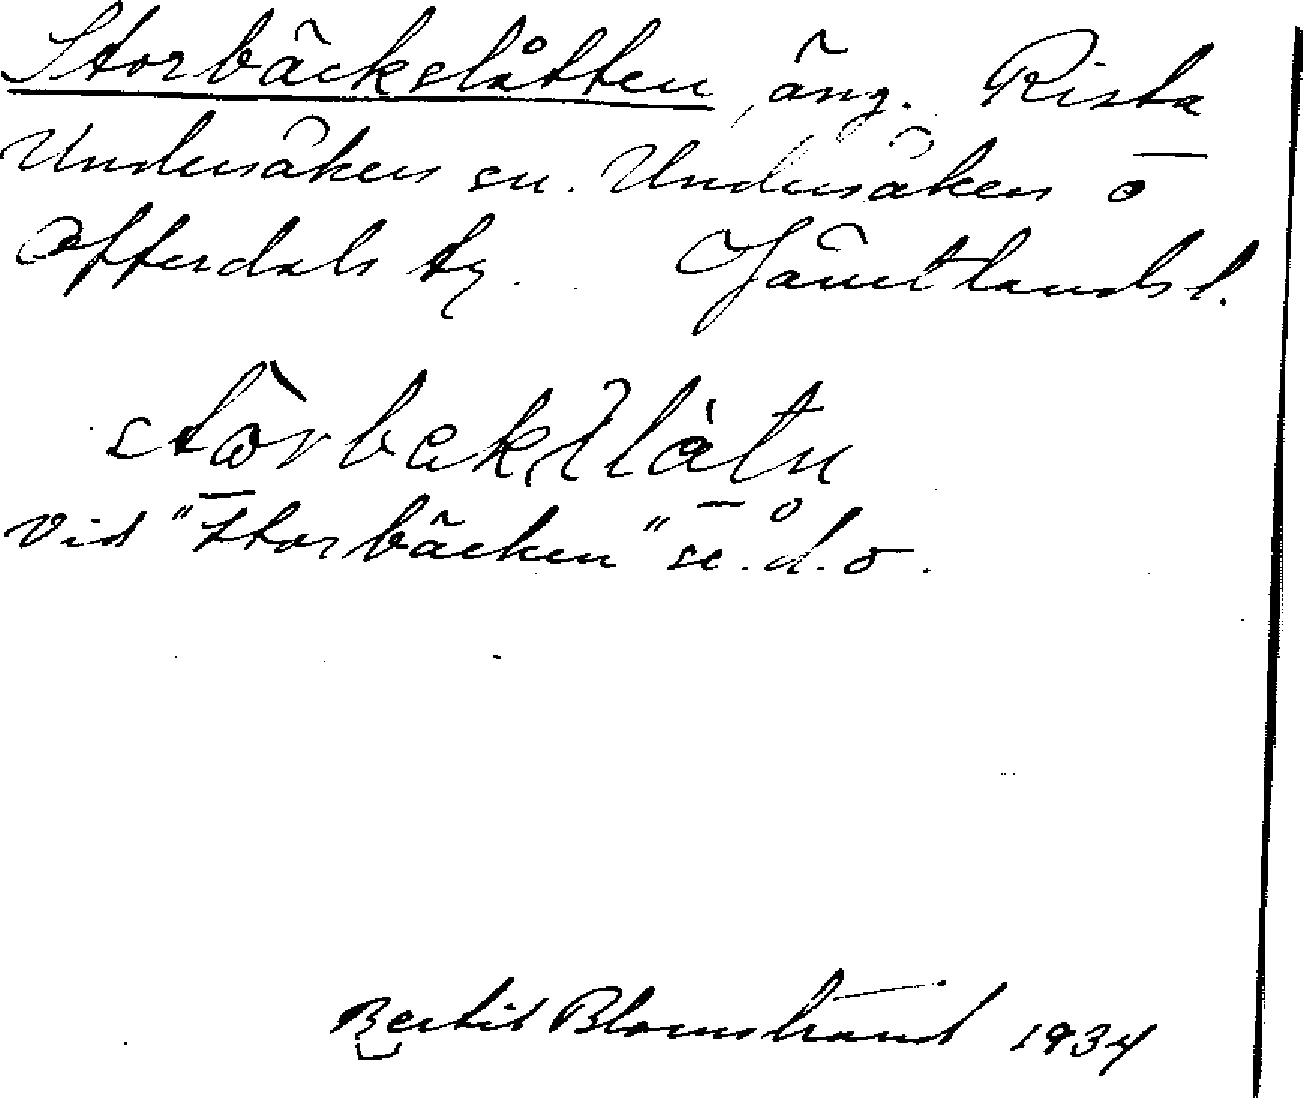 Storbäckslåtten, äng. Rista
Undersåkers sn. Undersåkers o
Offerdals tg. Jämtlands l.
Vid "Storbäcken" se. d. o.
Bertil Blomstrand 1934